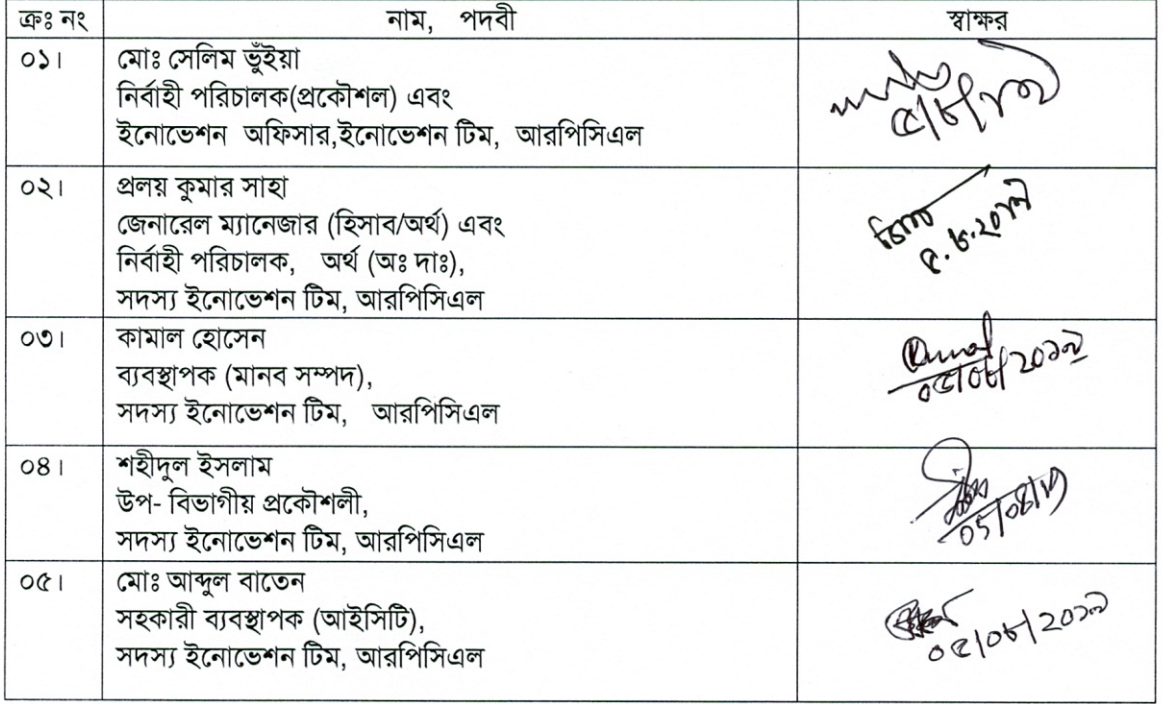 ক্রঃ নং নাম, পদবী স্বাক্ষর
০১। মোঃ সেলিম ভুঁইয়া
নির্বাহী পরিচালক(প্রকৌশল) এবং
ইনোভেশন অফিসার,ইনোভেশন টিম, আরপিসিএল
০২। প্রলয় কুমার সাহা
জেনারেল ম্যানেজার (হিসাব/অর্থ) এবং
নির্বাহী পরিচালক, অর্থ (অঃ দাঃ),
সদস্য ইনোভেশন টিম, আরপিসিএল
০৩। কামাল হোসেন
ব্যবস্থাপক (মানব সম্পদ),
সদস্য ইনোভেশন টিম, আরপিসিএল
০৫/০৮/২০১৯
০৪। শহীদুল ইসলাম
উপ- বিভাগীয় প্রকৌশলী,
সদস্য ইনোভেশন টিম, আরপিসিএল
05/08/19
০৫। মোঃ আব্দুল বাতেন
সহকারী ব্যবস্থাপক (আইসিটি),
সদস্য ইনোভেশন টিম, আরপিসিএল
০৫/০৮/২০১৯